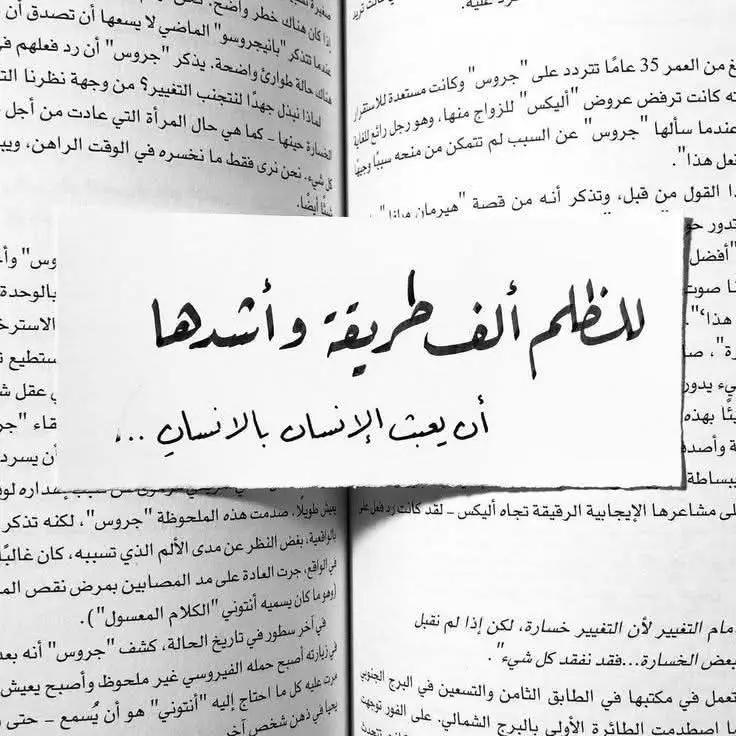 إذا كان هناك خطر واضح.
عندما تتذكر "بانيجروسو" الماضي لا يسعها أن تصدق أن
هناك حالة طوارئ واضحة. يذكر "جروس" أن رد فعلهم في
لماذا نبذل جهدًا لنتجنب التغيير؟ من وجهة نظرنا
الخسارة حينها - كما هي حال المرأة التي عادت من أجل
كل شيء. نحن نرى فقط ما نخسره في الوقت الراهن،
شيئًا أيضًا.
من العمر 35 عامًا تتردد على "جروس" وكانت مستعدة للاستقرار
كانت ترفض عروض "أليكس" للزواج منها، وهو رجل رائع للغاية
عندما سألها "جروس" عن السبب لم تتمكن من منحه سببًا وجيهًا
هذا".
القول من قبل، وتذكر أنه من قصة "هيرمان
للظلم ألف طريقة وأشدها
أن يعبث الإنسان بالانسان ...
بالوحدة
عقل
أن يسرد
يعيش طويلًا. صدمت هذه الملحوظة "جروس"، لكنه تذكر
بالواقعية، بغض النظر عن مدى الألم الذي تسببه، كان غالبًا
في الواقع، جرت العادة على مد المصابين بمرض نقص
(وهو ما كان يسميه أنتوني "الكلام المعسول").
في آخر سطور في تاريخ الحالة، كشف "جروس" أنه بعد
في زيارته أصبح حمله الفيروسي غير ملحوظ وأصبح يعيش
مرت عليه كل ما احتاج إليه "أنتوني" هو أن يُسمع - حتى
يحيا في ذهن شخص آخر
"أفضل
صوت
هذا".
يدور
بهذه
ببساطة
على مشاعرها الإيجابية الرقيقة تجاه أليكس - لقد كانت رد فعل
التغيير لأن التغيير خسارة، لكن إذا لم نقبل
بعض الخسارة...فقد نفقد كل شيء".
تعمل في مكتبها في الطابق الثامن والتسعين في البرج الجنوبي
اصطدمت الطائرة الأولى بالبرج الشمالي. على الفور توجهت